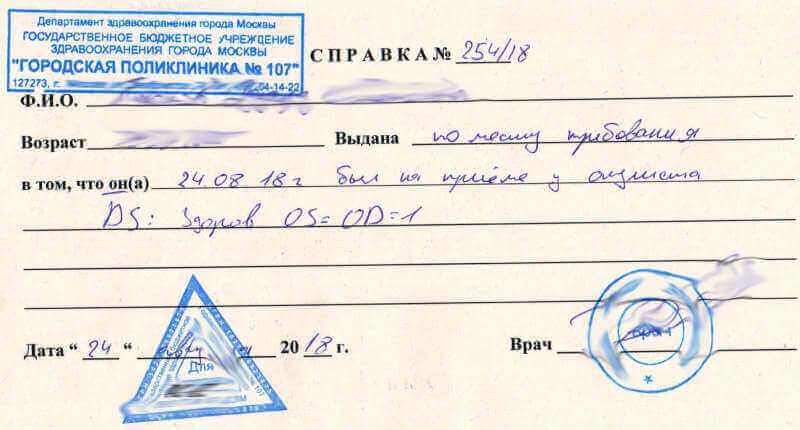 Департамент здравоохранения города Москвы
ГОСУДАРСТВЕННОЕ БЮДЖЕТНОЕ УЧРЕЖДЕНИЕ
ЗДРАВООХРАНЕНИЯ ГОРОДА МОСКВЫ
"ГОРОДСКАЯ ПОЛИКЛИНИКА № 107"
127273, г. 64-14-22
СПРАВКА № 254/18
Ф.И.О.
Возраст Выдана по месту требования
в том, что он(а) 24.08.18 г был на приёме у окулиста
DS: Здоров OS=OD=1
Дата “ 24 “ 20 18 г. Врач
Для
№ 107
врач